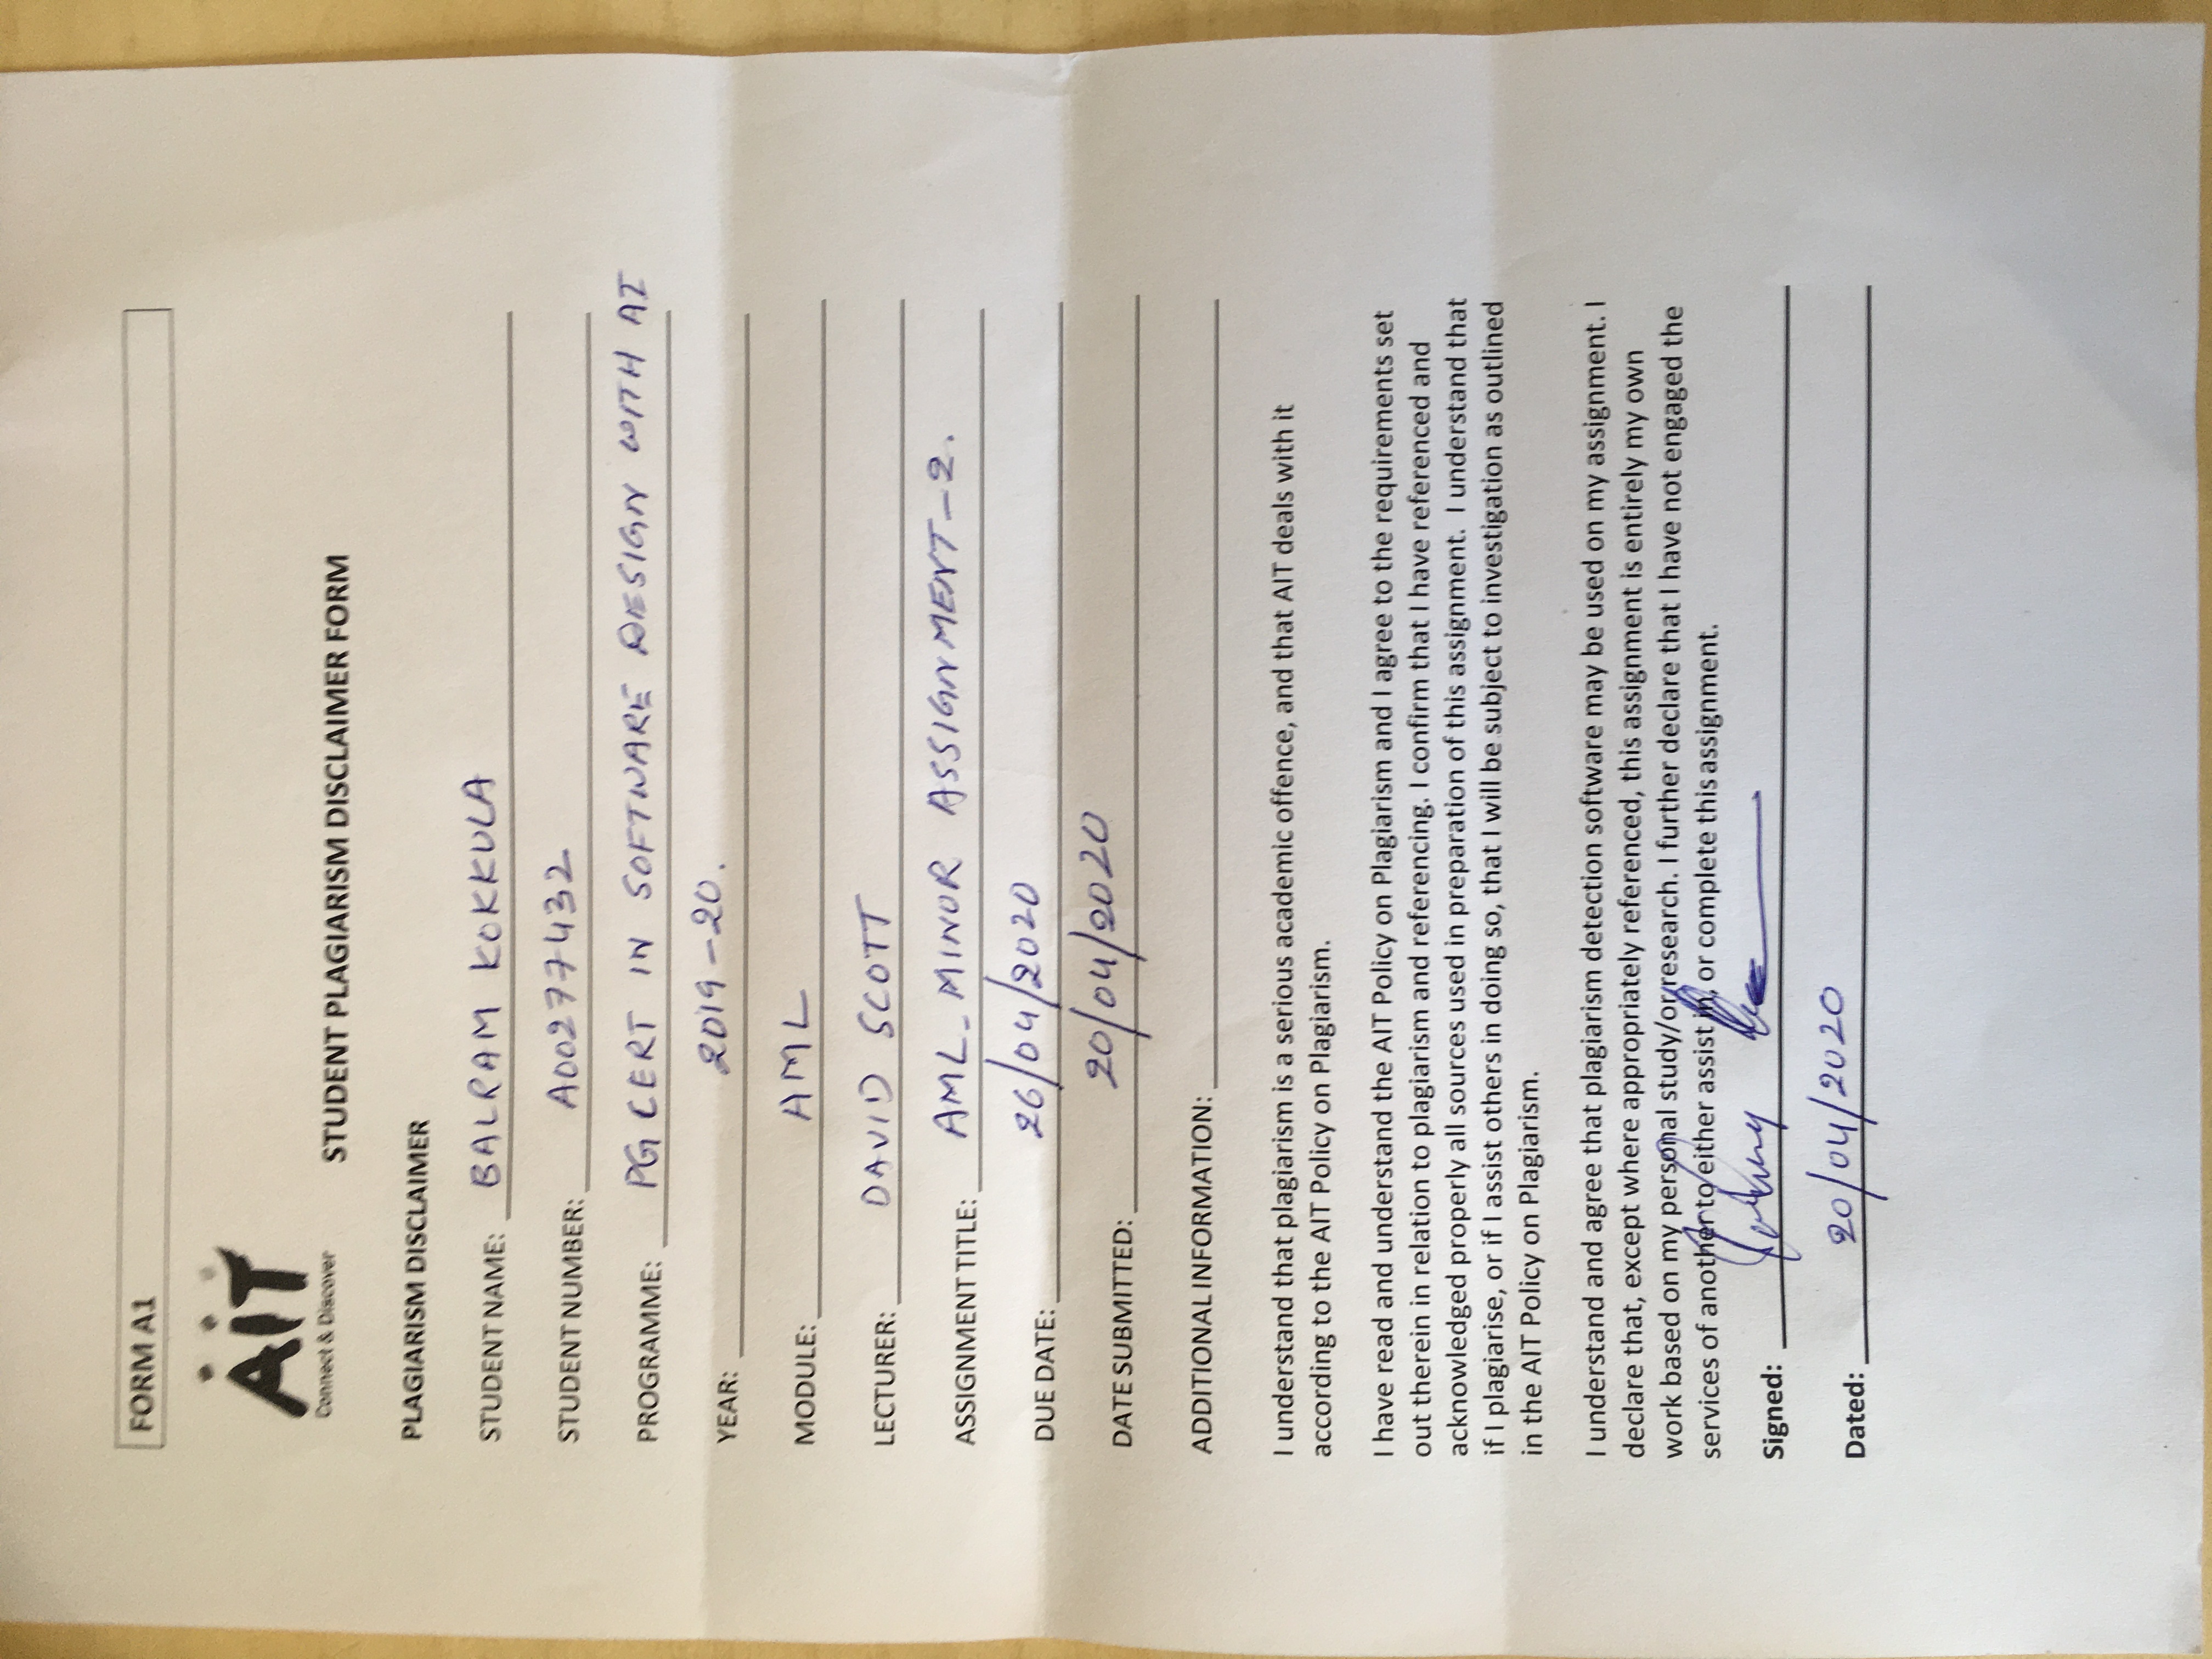 FORM A1
AIT
Connect & Discover
STUDENT PLAGIARISM DISCLAIMER FORM
PLAGIARISM DISCLAIMER
STUDENT NAME: BALRAM KOKKULA
STUDENT NUMBER: A00277432
PROGRAMME: PG CERT IN SOFTWARE DESIGN WITH AI
YEAR: 2019-20.
MODULE: AML
LECTURER: DAVID SCOTT
ASSIGNMENT TITLE: AML_MINOR ASSIGNMENT-2.
DUE DATE: 26/04/2020
DATE SUBMITTED: 20/04/2020
ADDITIONAL INFORMATION:
I understand that plagiarism is a serious academic offence, and that AIT deals with it
according to the AIT Policy on Plagiarism.
I have read and understand the AIT Policy on Plagiarism and I agree to the requirements set
out therein in relation to plagiarism and referencing. I confirm that I have referenced and
acknowledged properly all sources used in preparation of this assignment. I understand that
if I plagiarise, or if I assist others in doing so, that I will be subject to investigation as outlined
in the AIT Policy on Plagiarism.
I understand and agree that plagiarism detection software may be used on my assignment. I
declare that, except where appropriately referenced, this assignment is entirely my own
work based on my personal study/or research. I further declare that I have not engaged the
services of another to either assist in, or complete this assignment.
Signed:
Dated: 20/04/2020